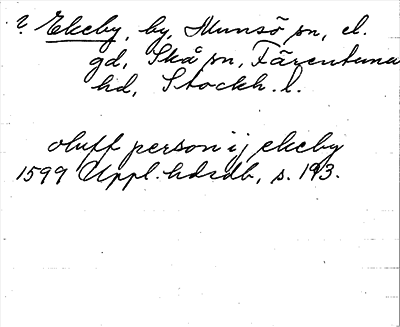 ? Ekeby, by, Munsö sn, el.
gd, Skå sn, Färentuna
hd, Stockh. l.
oluff person ij ekeby
1599 Uppl. hdsdb, s. 193.